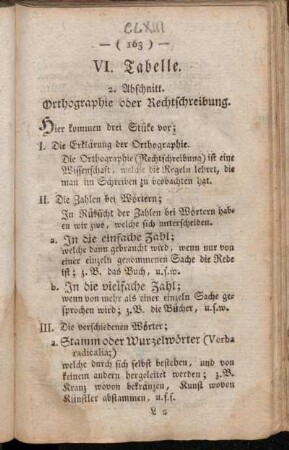 CLXIII
— ( 163 ) —
VI. Tabelle.
2. Abschnitt.
Orthographie oder Rechtschreibung.
Hier kommen drei Stüke vor;
I. Die Erklärung der Orthographie.
Die Orthographie (Rechtschreibung) ist eine
Wissenschaft, welche die Regeln lehret, die
man im Schreiben zu beobachten hat.
II. Die Zahlen bei Wörtern;
In Rüksicht der Zahlen bei Wörtern hab-
en wir zwo, welche sich unterscheiden.
a. In die einfache Zahl;
welche dann gebraucht wird, wenn nur von
einer einzeln genommenen Sache die Rede
ist; z.B. das Buch, u.s.w.
b. In die vielfache Zahl;
wenn von mehr als einer einzeln Sache ge-
sprochen wird; z.B. die Bücher, u.s.w.
III. Die verschiedenen Wörter;
a. Stamm oder Wurzelwörter (Verba
radicalia;)
welche durch sich selbst bestehen, und von
keinem andern hergeleitet werden; z.B.
Kranz wovon bekränzen, Kunst wovon
Künstler abstammen, u.s.f.
L 2